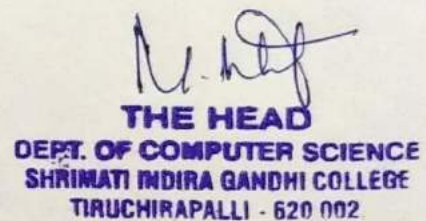 THE HEAD
DEPT. OF COMPUTER SCIENCE
SHRIMATI INDIRA GANDHI COLLEGE
TIRUCHIRAPALLI - 620 002